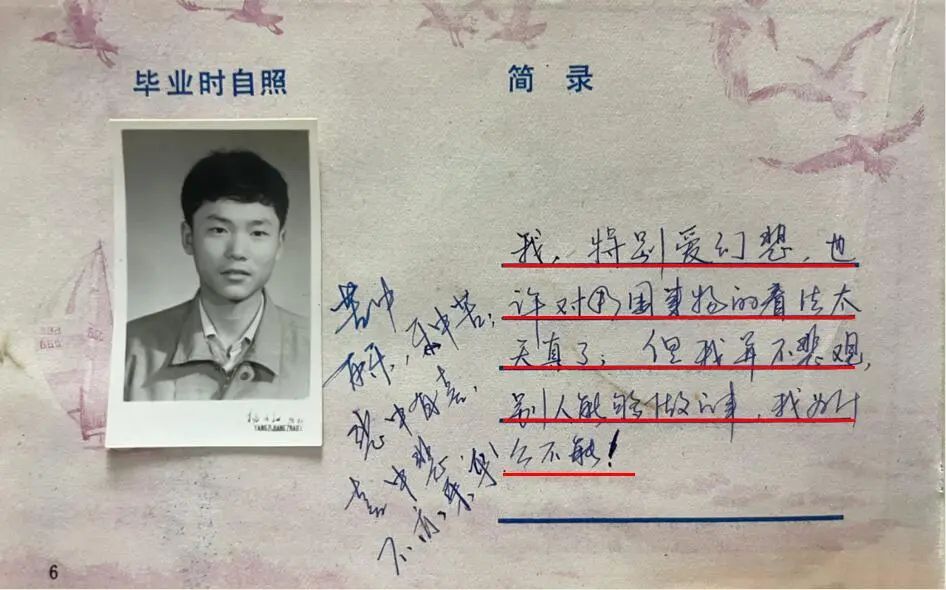 毕业时自照
简 录
我,特别爱幻想,也
许对周围事物的看法太
天真了;但我并不悲观,
别人能够做的事,我为什
么不能!
苦中
有乐,乐中苦;
悲中有喜,
喜中悲
YANGZIJIANG
6